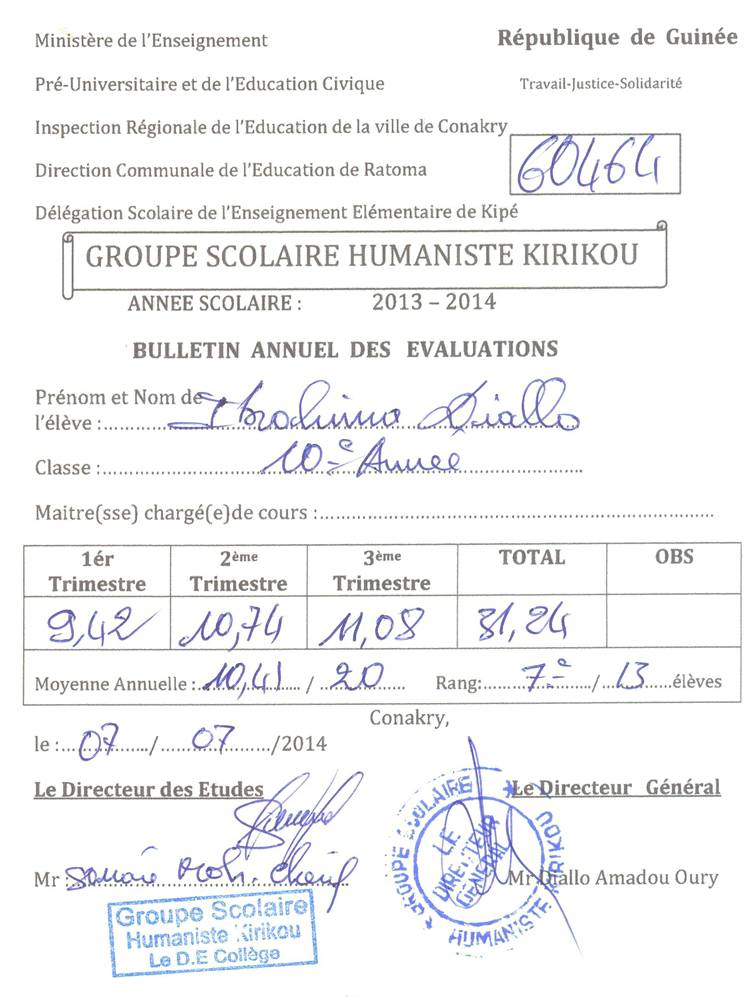 Ministère de l'Enseignement
République de Guinée
Pré-Universitaire et de l'Education Civique
Travail-Justice-Solidarité
Inspection Régionale de l'Education de la ville de Conakry
60464
Direction Communale de l'Education de Ratoma
Délégation Scolaire de l'Enseignement Elémentaire de Kipé
GROUPE SCOLAIRE HUMANISTE KIRIKOU
ANNEE SCOLAIRE : 2013 – 2014
BULLETIN ANNUEL DES EVALUATIONS
Prénom et Nom de
l'élève : Ibrahima Diallo
Classe : 10e Année
Maitre(sse) chargé(e)de cours :
1ér Trimestre 2ème Trimestre 3ème Trimestre TOTAL OBS
9,42 10,74 11,08 31,24
Moyenne Annuelle : 10,41 / 20 Rang: 7e / 13 élèves
Conakry,
le : 07 / 07 /2014
Le Directeur des Etudes Le Directeur Général
Mr Mr Diallo Amadou Oury
Groupe Scolaire
Humaniste Kirikou
Le D.E Collège
GROUPE SCOLAIRE
HUMANISTE KIRIKOU
LE
DIRECTEUR
GENERAL